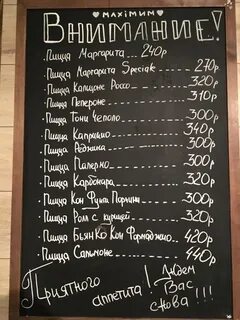 ♥ MAXIMИМ ♥
ВНИМАНИЕ!
· Пицца Маргарита ... 240р
· Пицца Маргарита Speciale 270р
· Пицца Кальцоне Россо 320р
· Пицца Пепероне 310р
· Пицца Тони Чеполо 300р
· Пицца Каприччио 340р
· Пицца Реджина 300р
· Пицца Палермо 300р
· Пицца Карбонара 320р
· Пицца Кон Фунги Порчини 300р
· Пицца Ром с курицей 320р
· Пицца Бьянко Кон Формаджио 420р
· Пицца Сальмоне 440р
Приятного аппетита!
Ждем Вас снова!!!